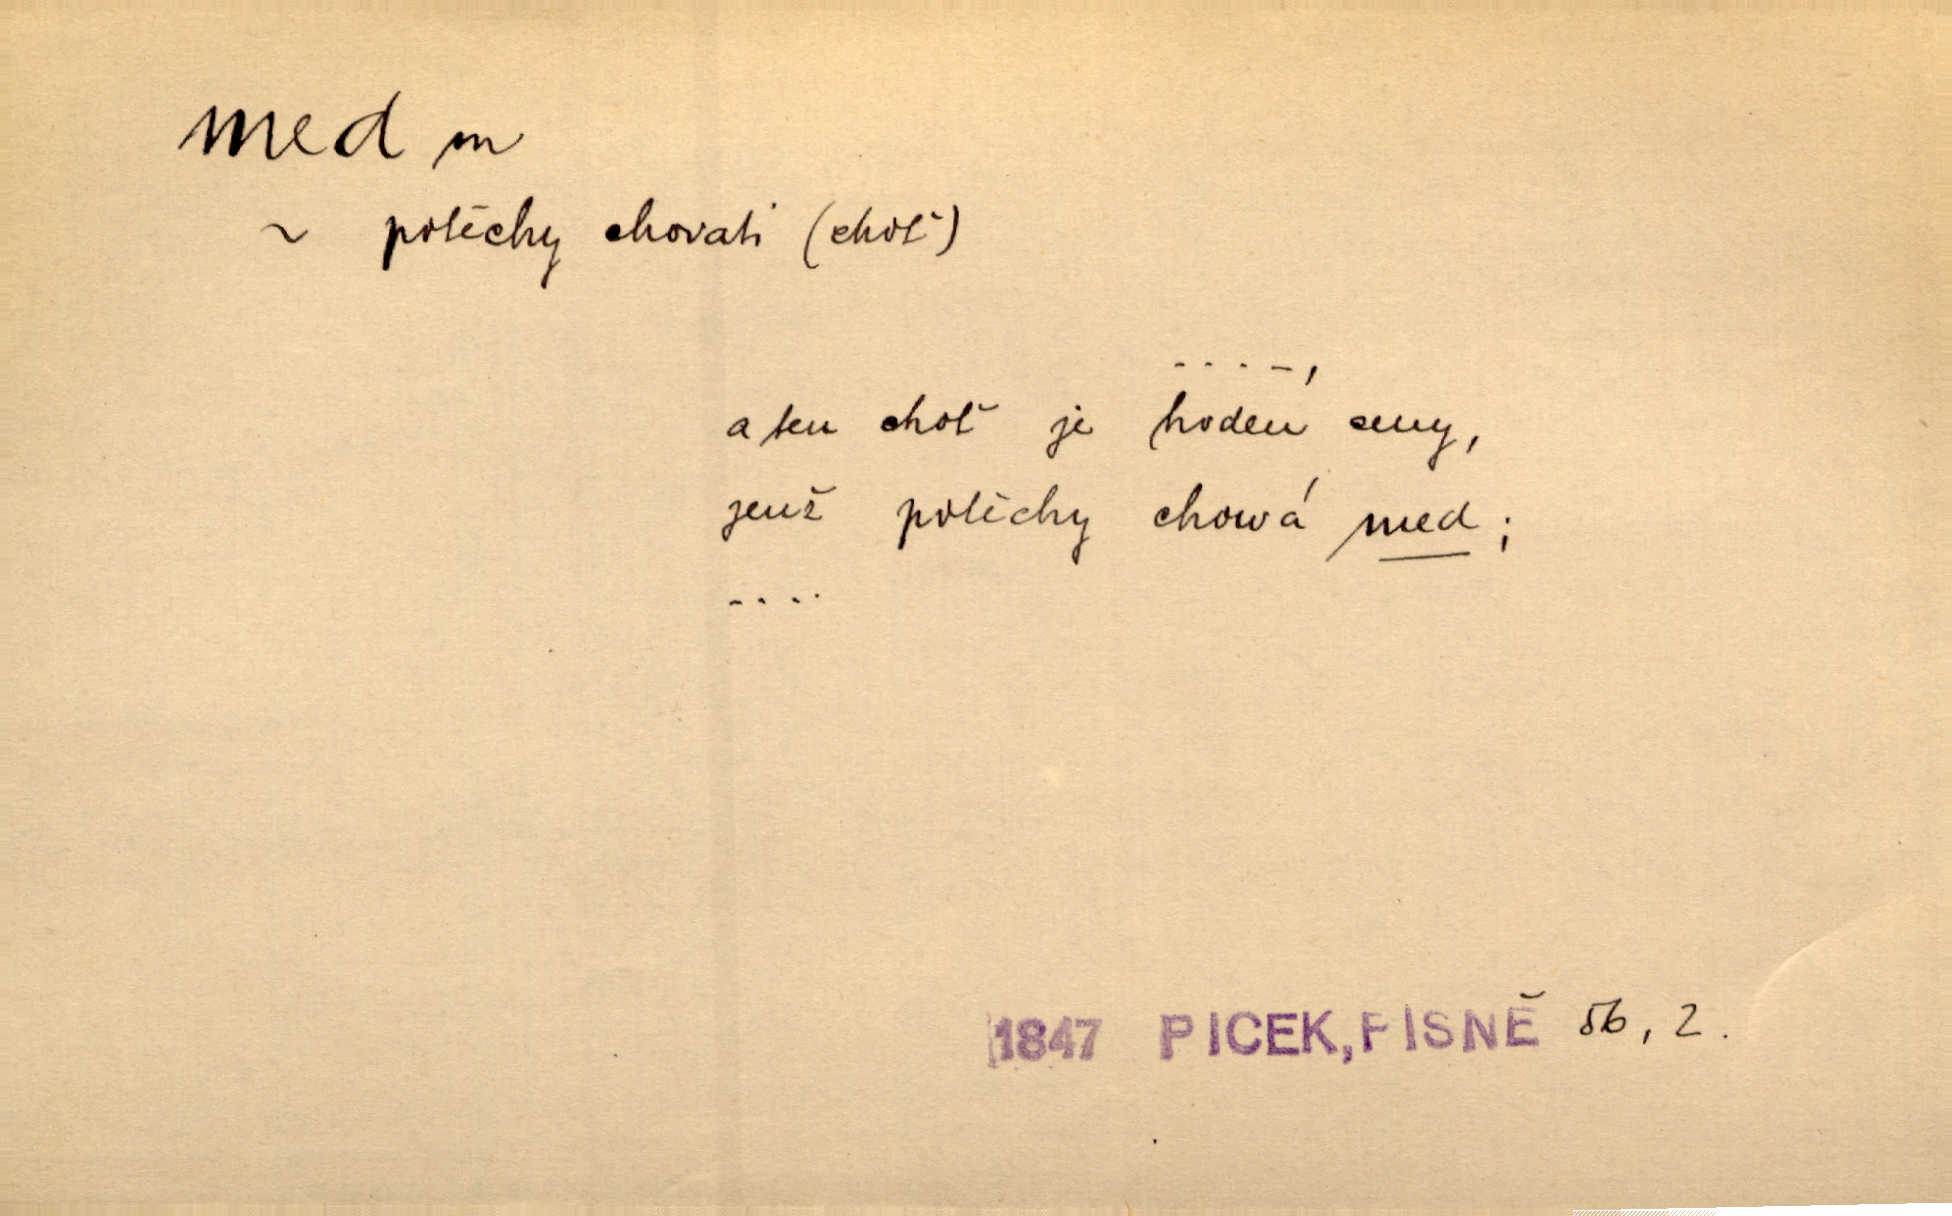 med m
~ potěchy chovati (choť)
. . . . ,
a ten choť je hoden ceny,
jenž potěchy chowá med ;
. . . .
1847 PICEK, PISNĚ 56, 2.